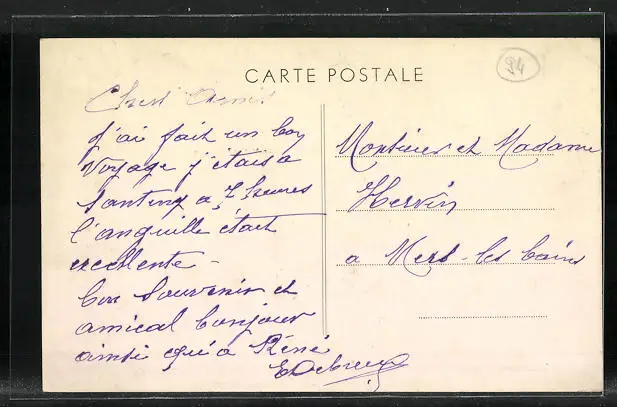 CARTE POSTALE
94
Chers Amis
J'ai fait un bon
voyage j'étais a
a 7 heures
l'anguille était
excellente -
bon souvenir et
amical bonjour
ainsi qu'a Réné
Monsieur et Madame
Hervin
a Mers-les bains